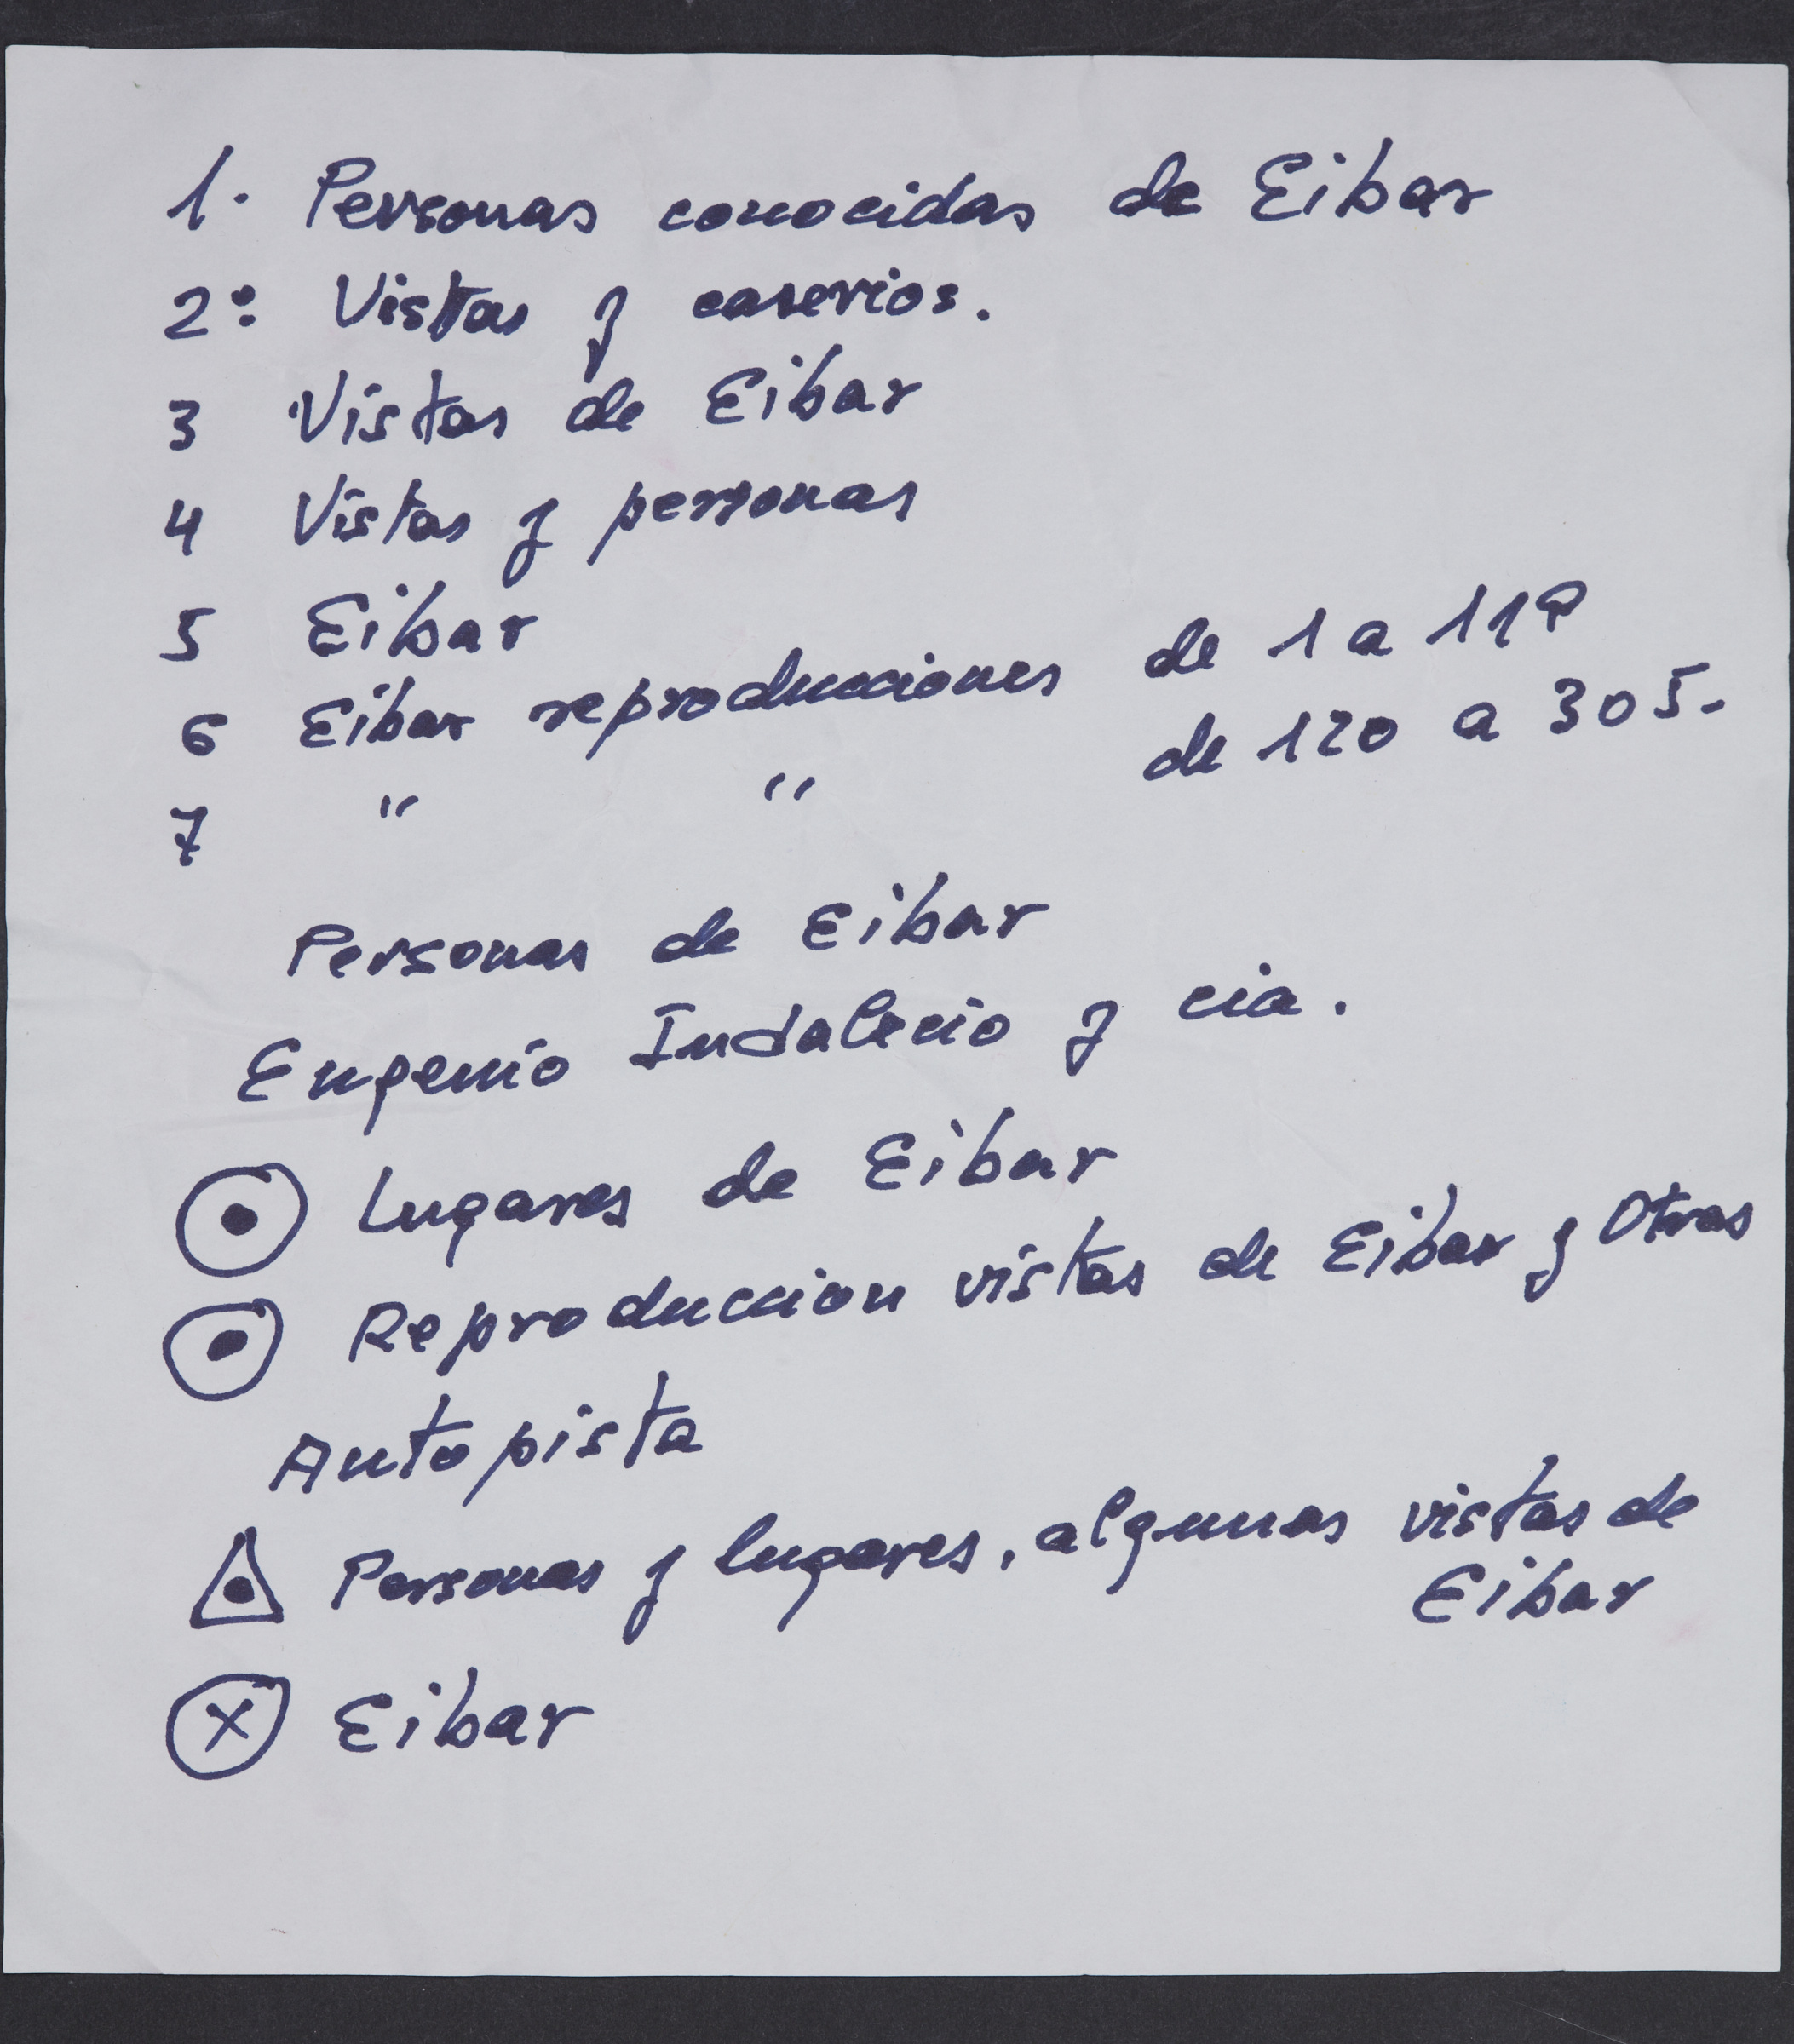 1. Personas conocidas de Eibar
2º: Vistas y caserios.
3 Vistas de Eibar
4 Vistas y personas
5 Eibar
6 Eibar reproducciones de 1 a 119
7 " " de 120 a 305.
Personas de Eibar
Eugenio Indalecio y cia.
Lugares de Eibar
Reproduccion vistas de Eibar y Otras
Autopista
Personas y lugares, algunas vistas de
Eibar
X Eibar